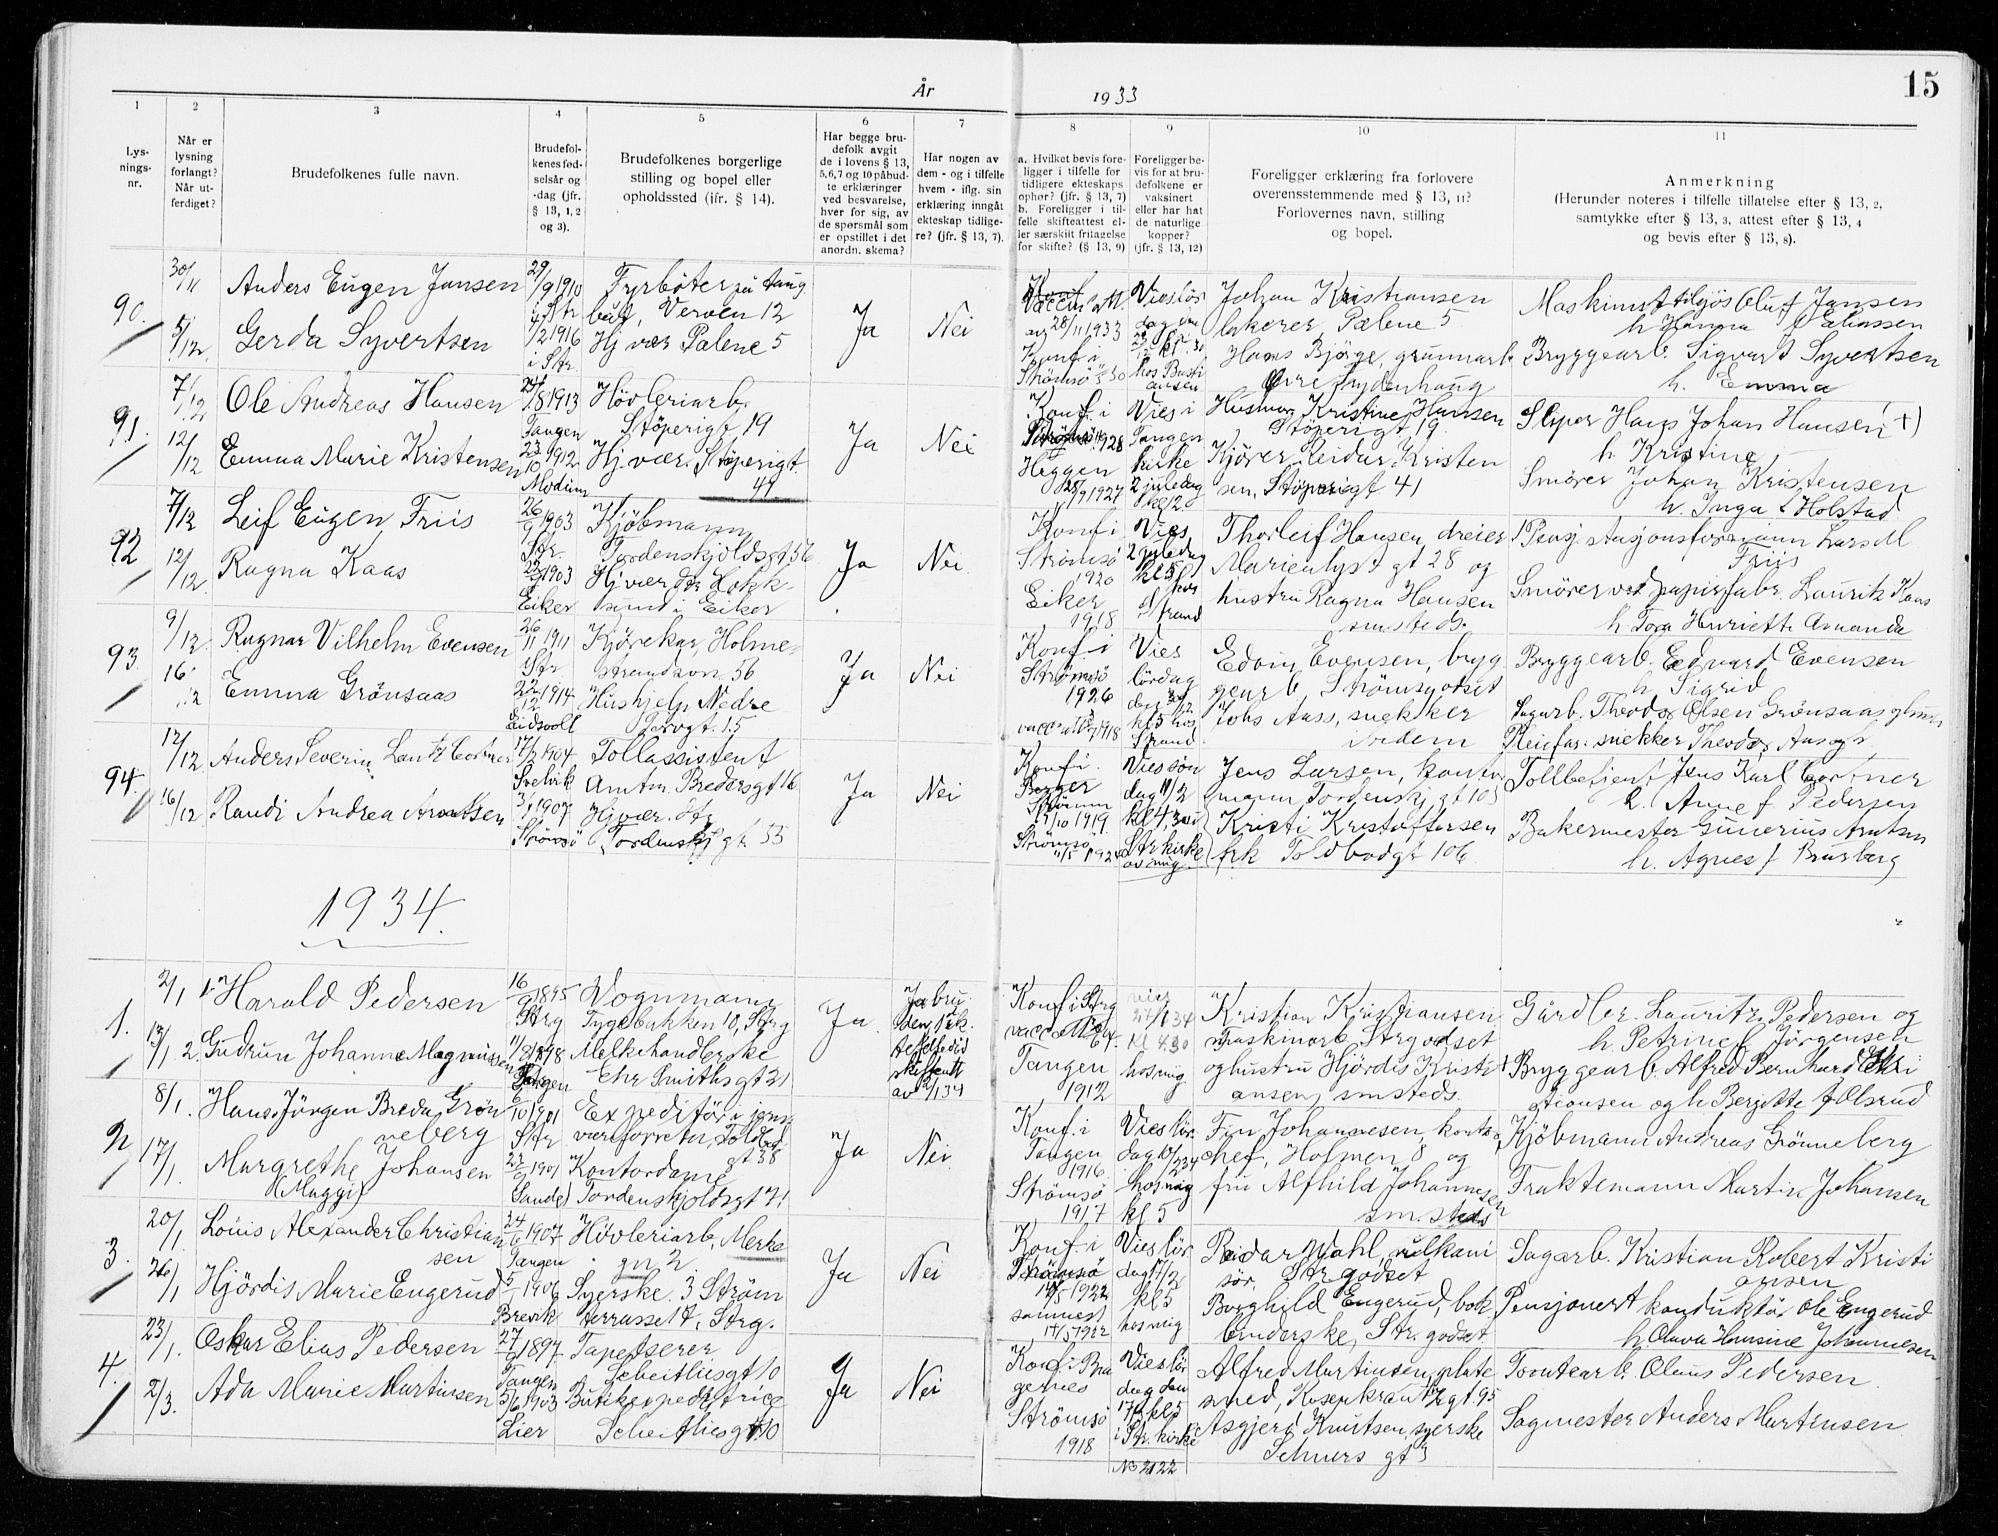 År 1933
15
1
2
3
4
5
6
7
8
9
10
11
Lys-
nings-
nr.
Når er
lysning
forlangt?
Når ut-
ferdiget?
Brudefolkenes fulle navn.
Brudefol-
kenes fød-
selsår og
-dag (jfr.
§ 13, 1, 2
og 3).
Brudefolkenes borgerlige
stilling og bopel eller
opholdssted (jfr. § 14).
Har begge bru-
defolk avgit
de i lovens § 13,
5,6,7 og 10 påbud-
te erklæringer
ved besvarelse,
hver for sig, av
de spørsmål som
er opstillet i det
anordn. skema?
Har nogen av
dem - og i tilfelle
hvem - iflg. sin
erklæring inngått
ekteskap tidlige-
re? (jfr. § 13, 7).
a. Hvilket bevis fore-
ligger i tilfelle for
tidligere ekteskaps
ophør? (jfr. § 13, 7)
b. Foreligger i til-
felle skifteattest el-
ler særskilt fritagelse
for skifte? (§ 13, 9)
Foreligger be-
vis for at bru-
defolkene er
vaksinert
eller har hat
de naturlige
kopper?
(jfr. § 13, 12)
Foreligger erklæring fra forlovere
overensstemmende med § 13, 11?
Forlovernes navn, stilling
og bopel.
Anmerkning
(Herunder noteres i tilfelle tillatelse efter § 13, 2,
samtykke efter § 13, 3, attest efter § 13, 4
og bevis efter § 13, 8).
90.
30/11
5/12
Anders Eugen Jansen
Gerda Syvertsen
29/9 1910
i Str
4/2 1916
i Str.
Fyrböter på taug
båt, Verven 12
Hj vær Pælene 5
Ja
Nei
Vaccin. M.
av 28/11 1933
Konf i
Strömsö 30
Vies lör
dag
hos Basti
ansen
Johan Kristiansen
lakerer, Pælene 5
Hans Björge, grunnarb
Övre Frydenhaug
Maskinist tilsjös Oluf Jansen
h Hanna f Eliassen
Bryggearb. Sigvart Syvertsen
h. Emma
91.
7/12
12/12
Ole Andreas Hansen
Emma Marie Kristensen
24/8 1913
Tangen
23/10 1912
Modum
Hövleriarb.
Störperigt 19
Hj. vær. Störperigt.
41
Ja
Nei
Konf. i
1928
Heggen
25/9 1927
Vies i
Tangen
kirke
2 juledag
kl 20
Husmor Kristine Hansen
Störperigt 19
Kjörer Reidar Kristen
sen, Störperigt 41
Sliper Hans Johan Hansen (+)
h Kristine
Smörer Johan Kristensen
h. Inga f Holstad
92
7/12
12/12
Leif Eugen Friis
Ragna Kaas
26/9 1903
Str.
1903
Eiker
Kjöbmann
Tordenskjoldsgt 56
Hj vær der Hokk-
sund i Eiker
Ja
Nei
Konf i
Strömsö
1920
Eiker
1918
Vies
2 juledag
kl 5
hos
Strand
Thorleif Hansen, dreier
Marienlyst gt 28 og
hustru Ragna Hansen
smsteds.
Pensj. stasjonsformann Lars M
Friis
Smörer ved papirfabr. Lauritz Kaas
h. Tora Henriette Amanda
93.
9/12
16/12
Ragnar Vilhelm Evensen
Emma Grönsaas
26/11 1911
Str
22/12 1914
Eidsvoll
Kjörekar, Holme-
strandsvn 56
Hushjelp Nedre
Torvgt. 15
Ja
Nei
Konf. i
Strömsö
1926
1918
Vies
lördag
den 30/12
kl 5 hos
Strand.
Edvin Evensen, bryg
gearb, Strömsgodset
Johs Aass, snekker
ibidem
Bryggearb. Edvard Evensen
h. Sigrid
Sagarb. Theodor Olsen Grönsaas og hustru
Pleiefar: snekker Theodor Aas og
94.
12/12
16/12
Anders Severin Lantz Cortner
Randi Andrea Arntsen
17/2 1904
Svelvik
3/1 1907
Strömsö
Tollassistent
Amtm. Bredersgt 16
Hj vær. Str
Tordenskj gt 55
Ja
Nei
Konf i
Berger
Strömm
5/10 1919.
Strömsö
11/5 1924
Vies sön
dag 11/2
kl 4 30 i
Str kirke
av mig.
Jens Larsen, kontor
mann, Tordenskj gt 103
Kristi Kristoffersen
frk Toldbodgt 106.
Tollbetjent Jens Karl Cortner
h. Anne f. Pedersen
Bakermester Gunerius Arntsen
h. Agnes f Brusberg
1934.
1.
2/1
13/1
1. Harald Pedersen
2. Gudrun Johanne Magnussen
16/9 1895
Strg
11/8 1898
Tangen
Vognmann
Tygebakken 10, Strg
Melkehandlerske
Ehr Smithsgt 31
Ja
Ja bru
den, 1 ek.
skifteatt
av 2/1 34
Konf i Strg
Tangen
1912
vies
27/1 34
kl 4 30
hos mig
Kristian Kristiansen
maskinarb. Strgodset
og hustru Hjördis Kristi
ansen, smsteds.
Gårdbr. Lauritz Pedersen og
h. Petrine f Jörgensen
Bryggearb. Alfred Bernhard Kri
stiansen og h Bergitte f Olsrud
2
8/1.
17/1.
Hans Jörgen Breda Grön
neberg
Margrethe Johansen
(Maggi)
6/10 1901
Str
27/9 1901
Sande
Expeditör i jern-
vareforretn, Toldbod
gt 38
Kontordame
Tordenskjoldsgt 71
Ja
Nei
Konf. i
Tangen
1916
Strömsö
1917
Vies lör
dag 10/2 34
hos mig
kl 5
Finn Johannesen, kontor
chef, Holmen 8 og
fru Alfhild Johannesen
sm. steds
Kjöbmann Andreas Grönneberg
Fraktemann Martin Johansen
3.
20/1.
26/1
Louis Alexander Christian
sen
Hjördis Marie Engerud
24/6 1907
Tangen
5/1 1906
Brevik
Hövleriarb, Merke
gn 2
Syerske. 3 Ström
terrasse 17, Strg.
Ja
Nei
Konf i
Strömsö
1922
sammest
17/5 1922
Vies lör
dag 17/2
kl 5
hos mig
Reidar Wahl, vulkani
sör. Str godset
Borghild Engerud, bok
binderske, Str. godset
Sagarb. Kristian Robert Kristi
ansen
Pensjonert konduktör Ole Engerud
h Olava Hansine Johannesen
4.
23/1.
2/3.
Oskar Elias Pedersen
Ada Marie Martinsen
27/ 1897
Tangen
5/6 1903
Lier
Tapetserer
Scheitliesgt 10
Butikexpeditrice
Scheitliesgt 10
Ja
Nei
Konf i Bra
gernes
Strömsö
1918
Vies lör
dag den
17/3 kl 5
i Str. kirke
No 2122
Alfred Martinsen, plate
smed, Rosenkrantzgt 95
Asgjerd Knutsen, syerske
Schwers gt 3
Tomtearb. Olaus Pedersen
Sagmester Anders Martinsen